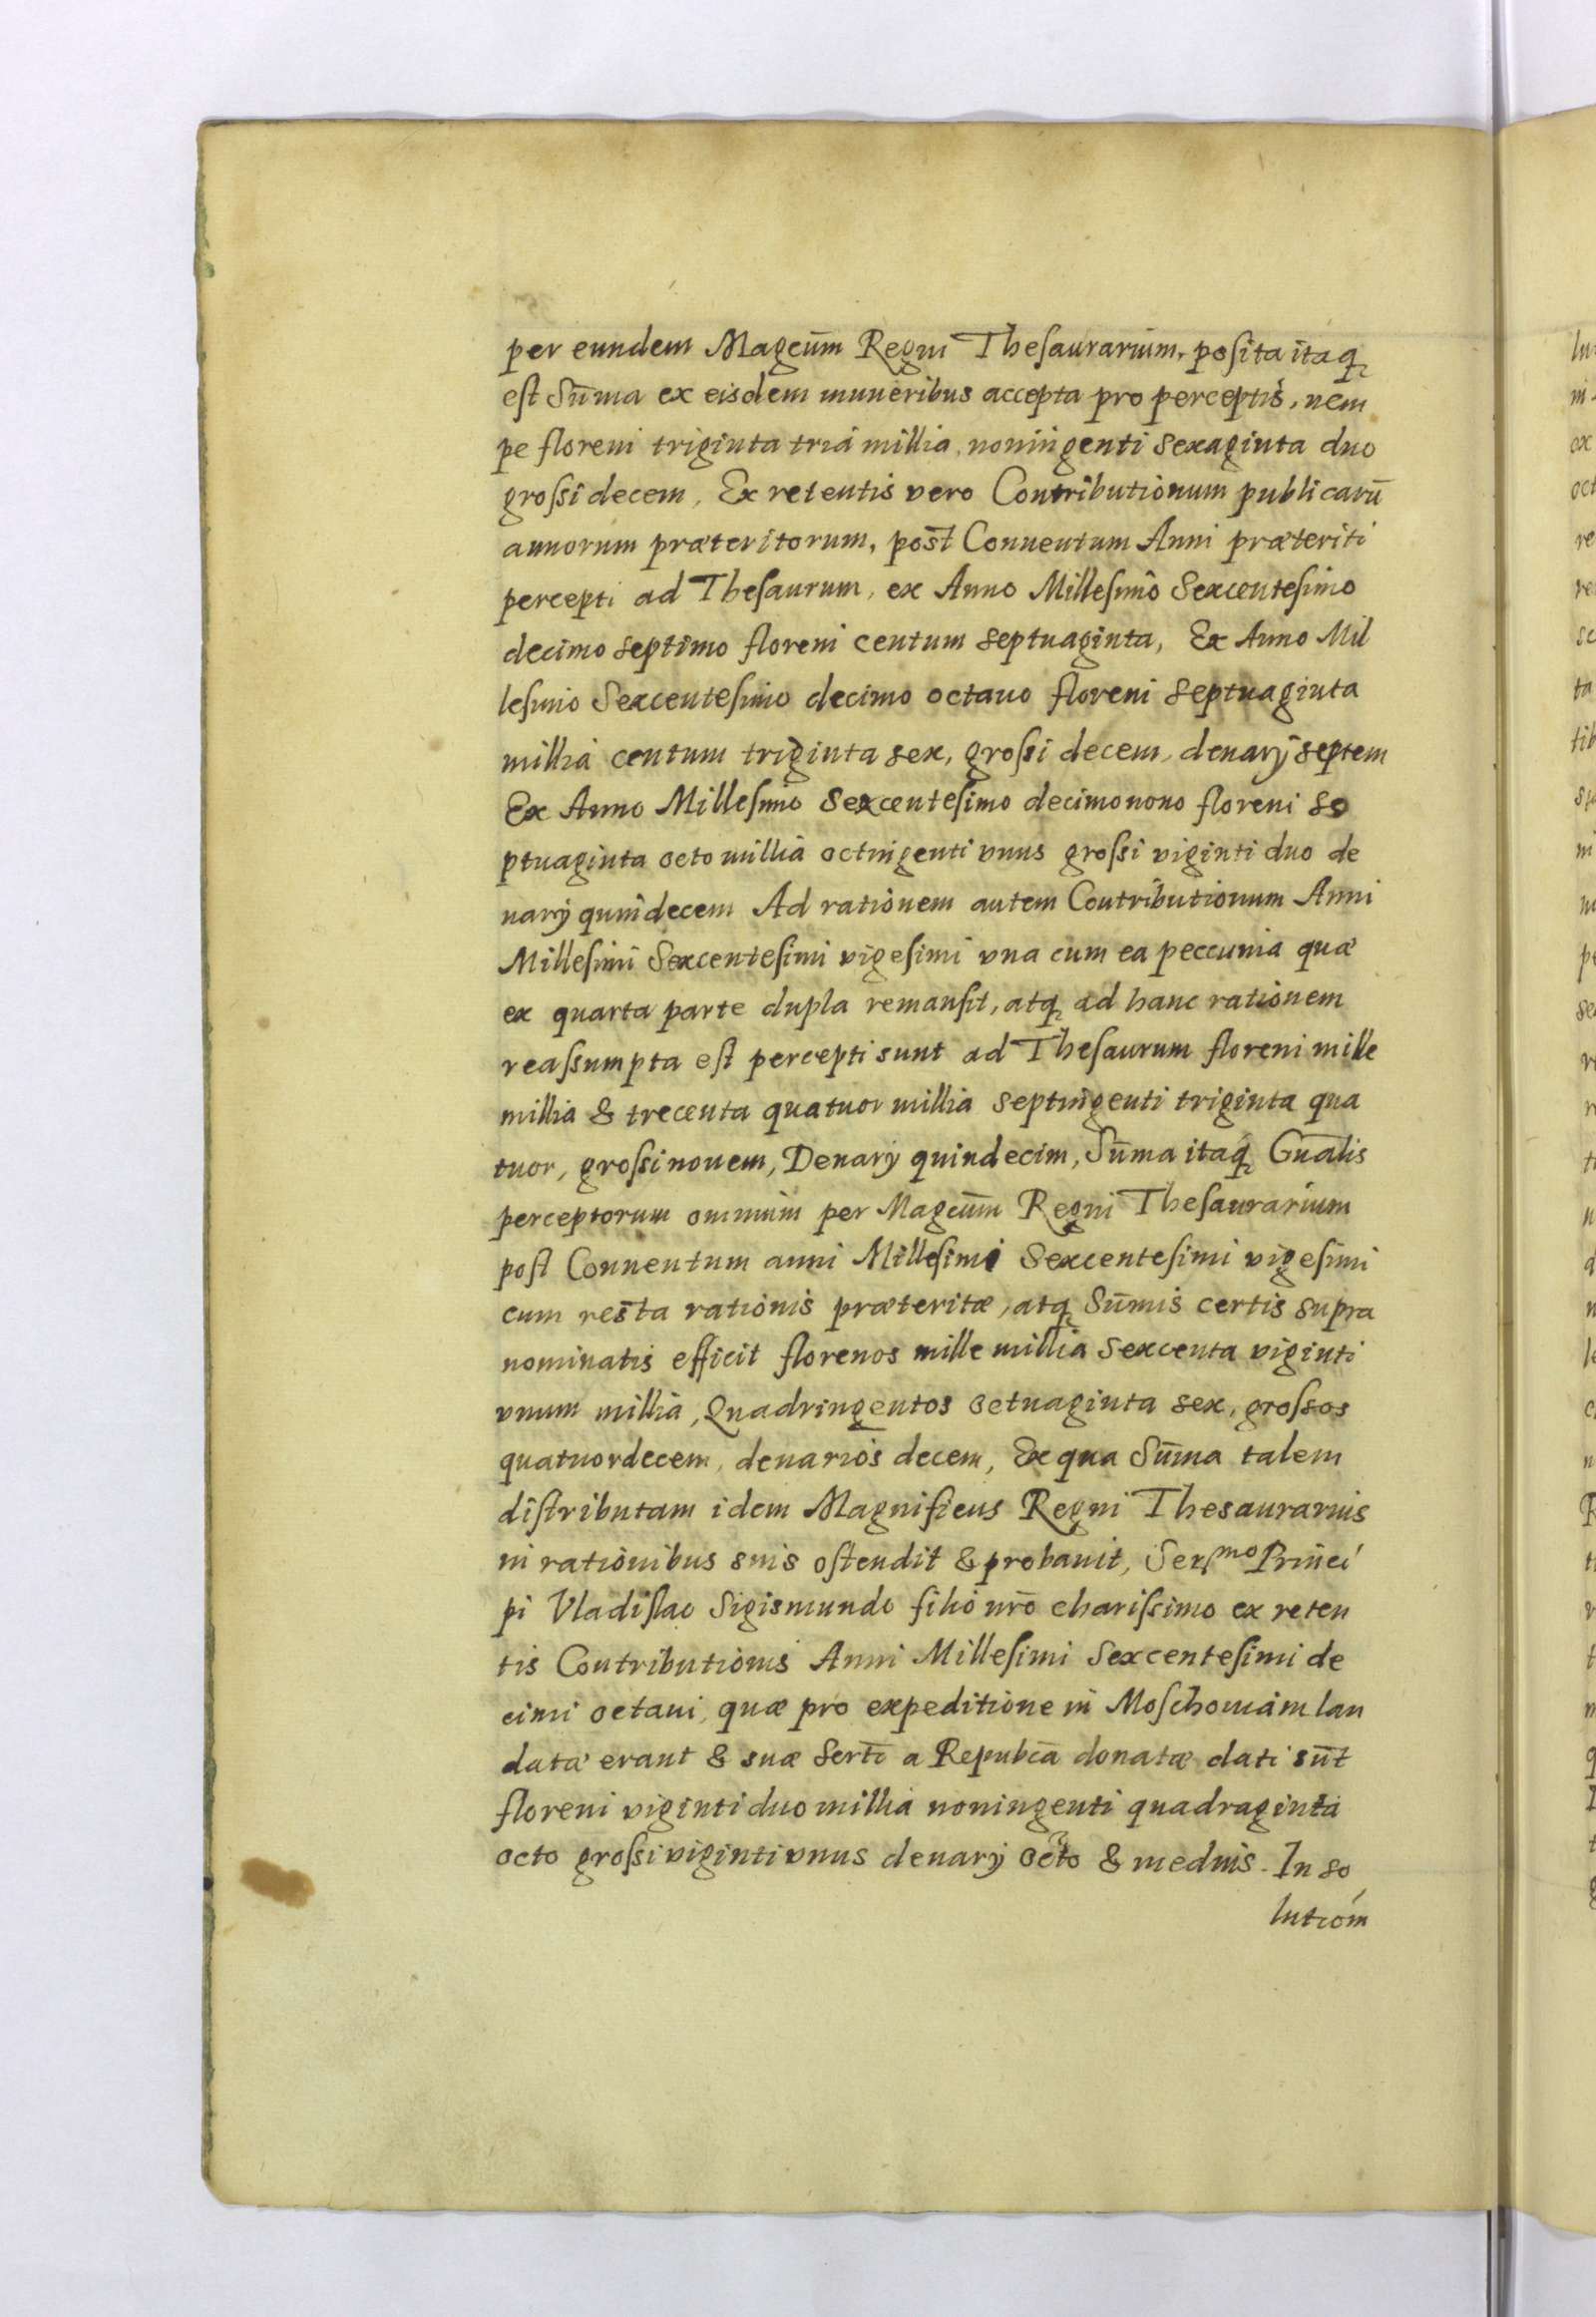 per eundem Magcūm Regni Thesaurarium, posita itaq
est Sūma ex eisdem muneribus accepta pro perceptis, nem
pe floreni triginta tria millia, noningenti sexaginta duo
grossi decem, Ex retentis vero Contributionum publicarū
annorum præteritorum, post Conuentum Anni præteriti
percepti ad Thesaurum, ex Anno Millesimo Sexcentesimo
decimo septimo floreni centum septuaginta, Ex Anno Mil
lesimo Sexcentesimo decimo octauo floreni septuaginta
millia centum triginta sex, grossi decem, denarÿ septem
Ex Anno Millesimo Sexcentesimo decimonono floreni se
ptuaginta octo millia octingenti vnus grossi viginti duo de
narÿ quindecem Ad rationem autem Contributionum Anni
Millesimi Sexcentesimi vigesimi vna cum ea peccunia quæ
ex quarta parte dupla remansit, atq ad hanc rationem
reassumpta est percepti sunt ad Thesaurum floreni mille
millia & trecenta quatuor millia septingenti triginta qua
tuor, grossi nouem, Denarÿ quindecim, Sūma itaq Gnālis
perceptorum omnium per Magcūm Regni Thesaurarium
post Conuentum anni Millesimi Sexcentesimi vigesimi
cum resta rationis præteritæ, atq Sūmis certis supra
nominatis efficit florenos mille millia sexcenta viginti
vnum millia, Quadringentos octuaginta sex, grossos
quatuordecem, denarios decem, Ex qua Sūma talem
distributam idem Magnificus Regni Thesaurarius
in rationibus suis ostendit & probauit, Sermo Princi
pi Vladislao Sigismundo filio nrō charissimo ex reten
tis Contributionis Anni Millesimi Sexcentesimi de
cimi octaui, quæ pro expeditione in Moschouiam lau
datæ erant & suæ Sertī a Repubcā donatæ dati sūt
floreni viginti duo millia noningenti quadraginta
octo grossi viginti vnus denarÿ octo & medius. In so
lutiom